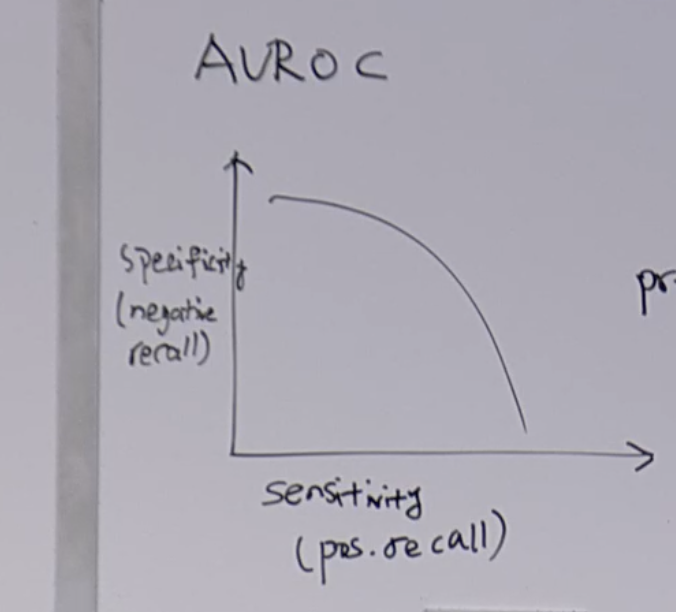 AUROC
Specificity
(negative
recall)
pr
sensitivity
(pos. recall)